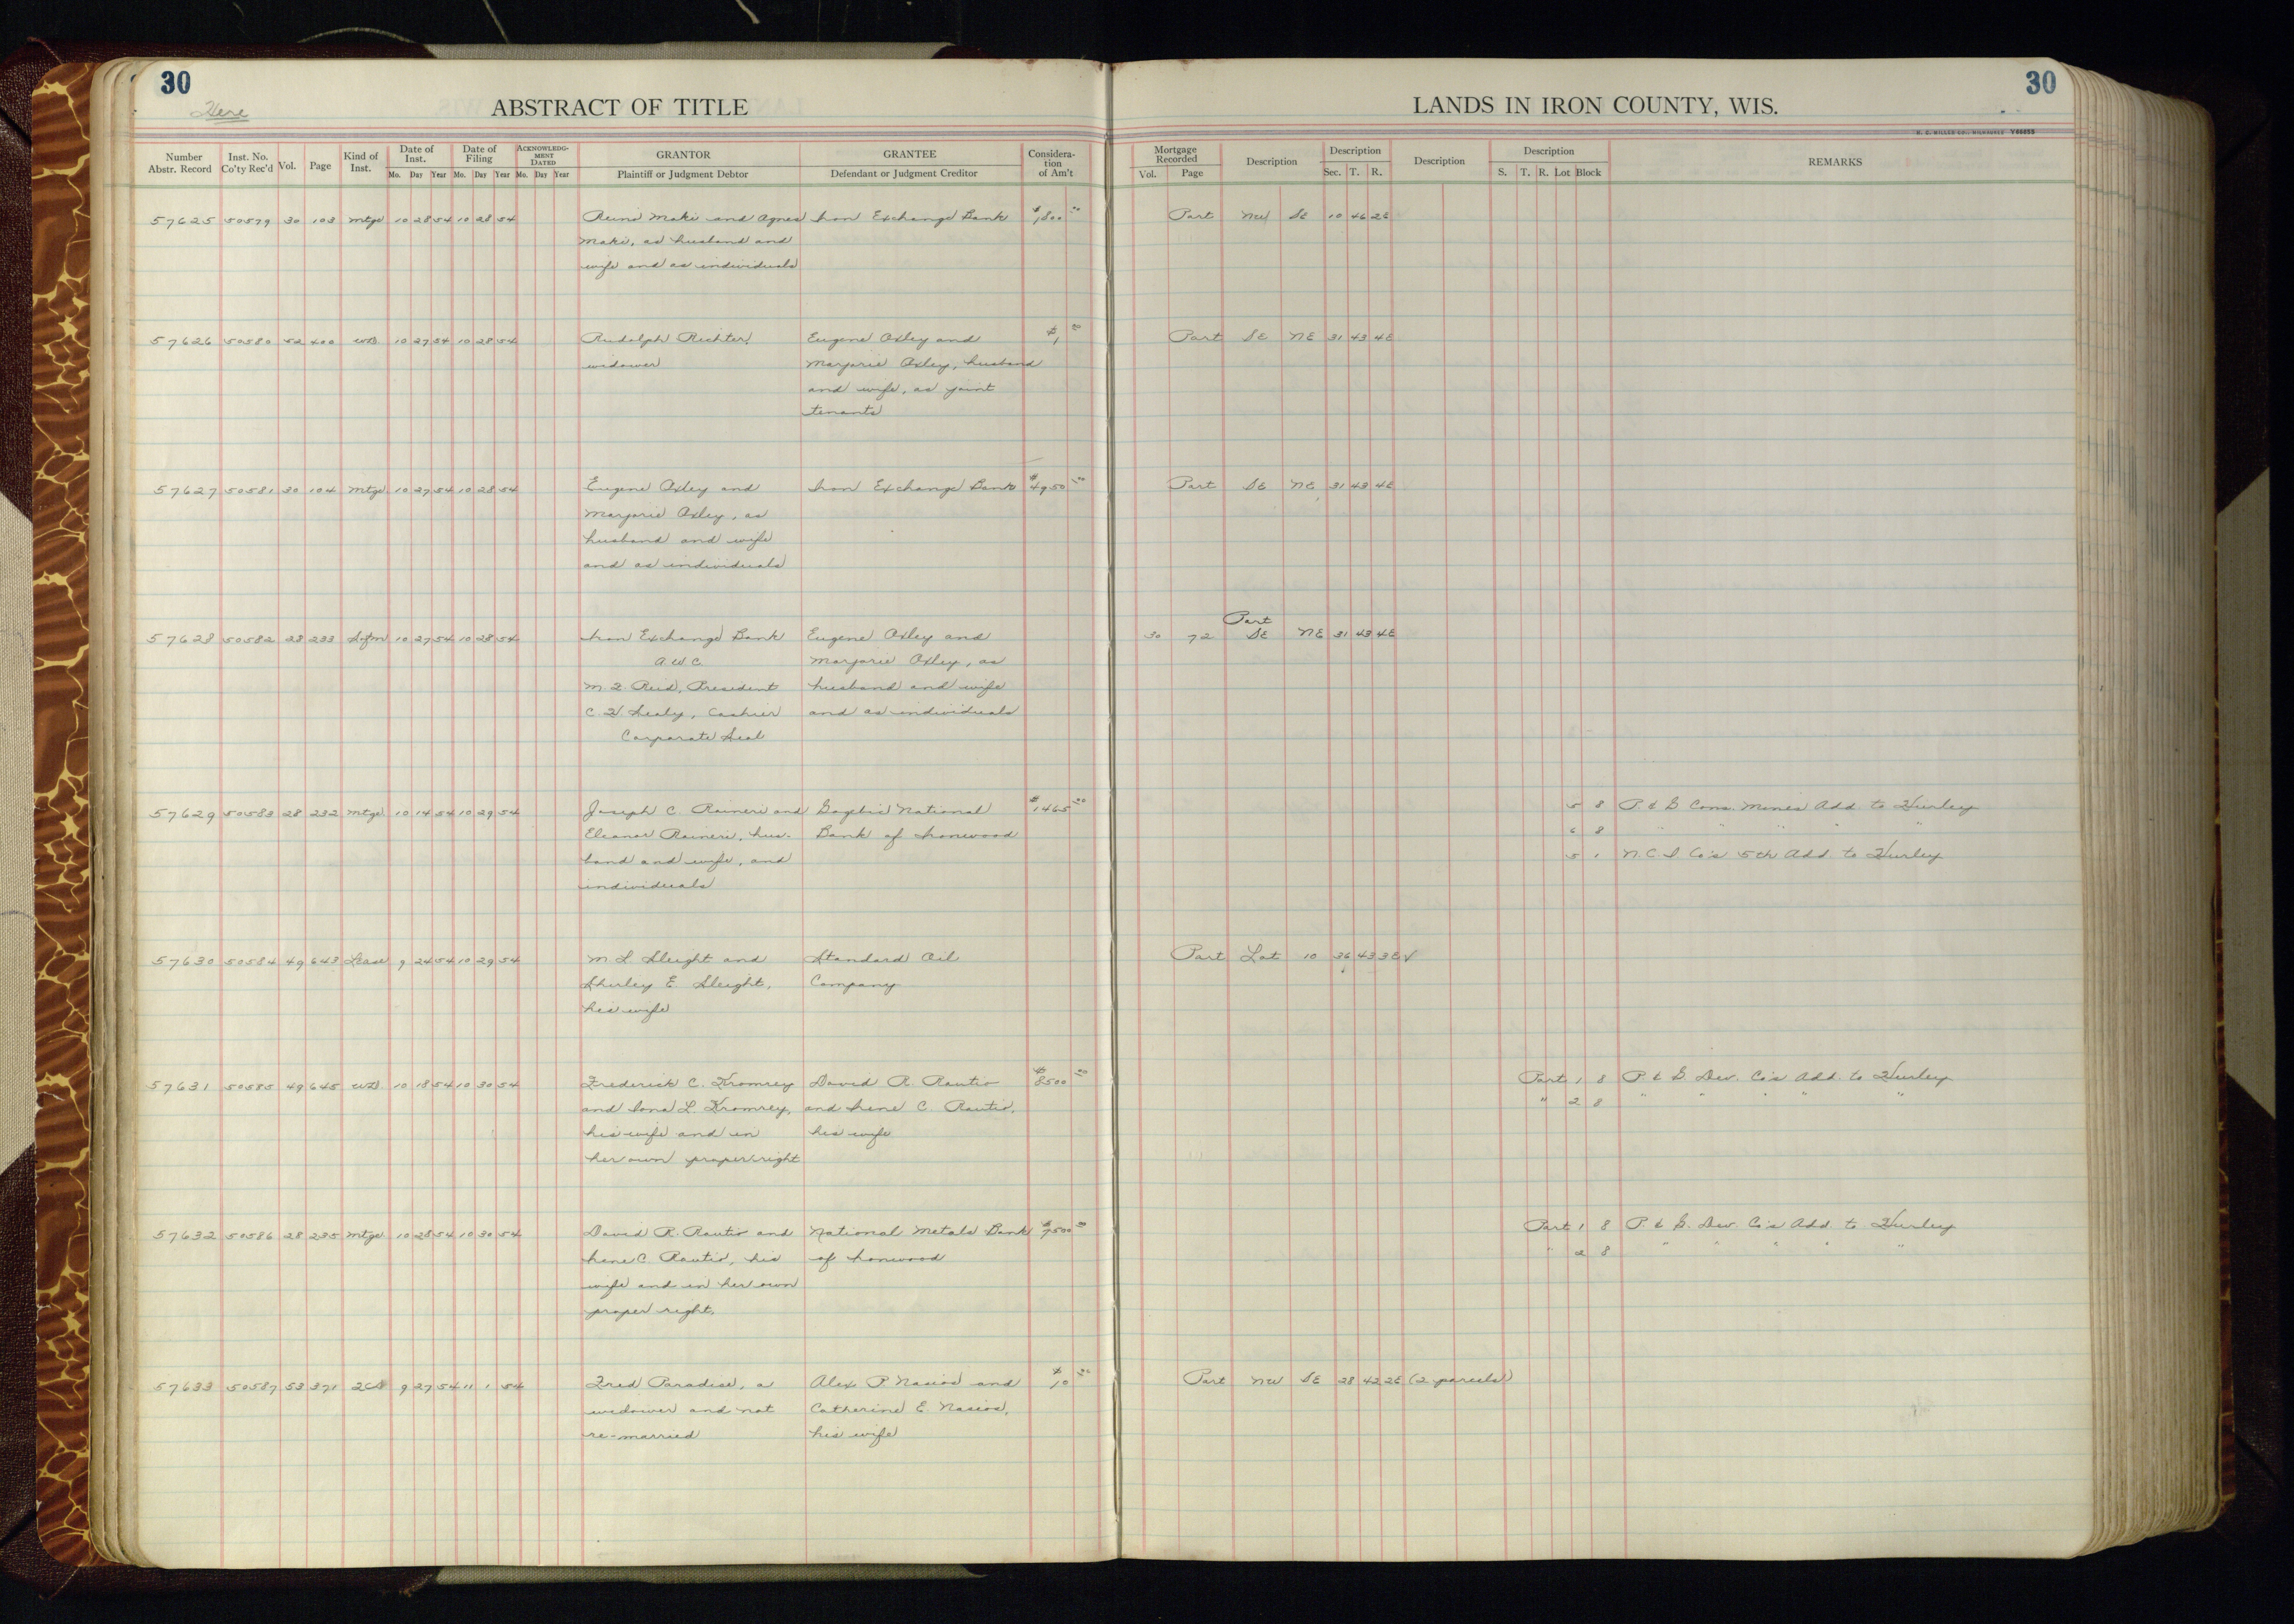 30
Here
ABSTRACT OF TITLE
Number Abstr. Record Inst. No. Co'ty Rec'd Vol. Page Kind of Inst. Date of Inst. Mo. Day Year Date of Filing Mo. Day Year ACKNOWLEDG-MENT DATED Mo. Day Year GRANTOR Plaintiff or Judgment Debtor GRANTEE Defendant or Judgment Creditor Considera-tion of Am't
LANDS IN IRON COUNTY, WIS.
30
H. C. MILLER CO., MILWAUKEE V66053
Mortgage Recorded Vol. Page Description Description Sec. T. R. Description Description S. T. R. Lot Block REMARKS
57625 50579 30 103 Mtge 10 28 54 10 28 54 Reino Maki and Agnes Iron Exchange Bank $1,800 00 Part NW SE 10 46 2E
Maki, as husband and
wife and as individuals
57626 50580 52 400 WD 10 27 54 10 28 54 Rudolph Richter, Eugene Oxley and $1 00 Part SE NE 31 43 4E
widower Marjorie Oxley, husband
and wife, as joint
tenants
57627 50581 30 104 Mtge 10 27 54 10 28 54 Eugene Oxley and Iron Exchange Bank $4950 00 Part SE NE 31 43 4E
Marjorie Oxley, as
husband and wife
and as individuals
Part
57628 50582 28 233 Sefm 10 27 54 10 28 54 Iron Exchange Bank Eugene Oxley and 30 72 SE NE 31 43 4E
A.W.C. Marjorie Oxley, as
President husband and wife
Cashier and as individuals
Corporate Seal
57629 50583 28 232 Mtge 10 14 54 10 29 54 Joseph C. Raineri and Gogebic National $1465 00 5 8 P. & G Cons. Mines Add to Hurley
Eleanor Raineri, hus- Bank of Ironwood 6 8 " " " " "
band and wife, and 5 1 N.C.I. Co's 5th Add to Hurley
individuals
57630 50584 49 643 Lease 9 24 54 10 29 54 M L Sleight and Standard Oil Part Lot 10 36 43 3E √
Shirley E. Sleight, Company
his wife
57631 50585 49 645 WD 10 18 54 10 30 54 Frederick C. Kromrey David R. Rautio $8500 00 Part 1 8 P. & G. Dev. Co's Add. to Hurley
and Iona L. Kromrey, and Irene C. Rautio, " 2 8 " " " " "
his wife and in his wife
her own proper right
57632 50586 28 235 Mtge 10 28 54 10 30 54 David R. Rautio and National Metals Bank $7500 00 Part 1 8 P. & G. Dev. Co's Add. to Hurley
Irene C. Rautio, his of Ironwood " 2 8 " " " " "
wife and in her own
proper right.
57633 50587 53 371 QCD 9 27 54 11 1 54 Fred Paradise, a Alex P. Nasios and $10 00 Part NW SE 28 42 2E (2 parcels)
widower and not Catherine E. Nasios,
re-married his wife